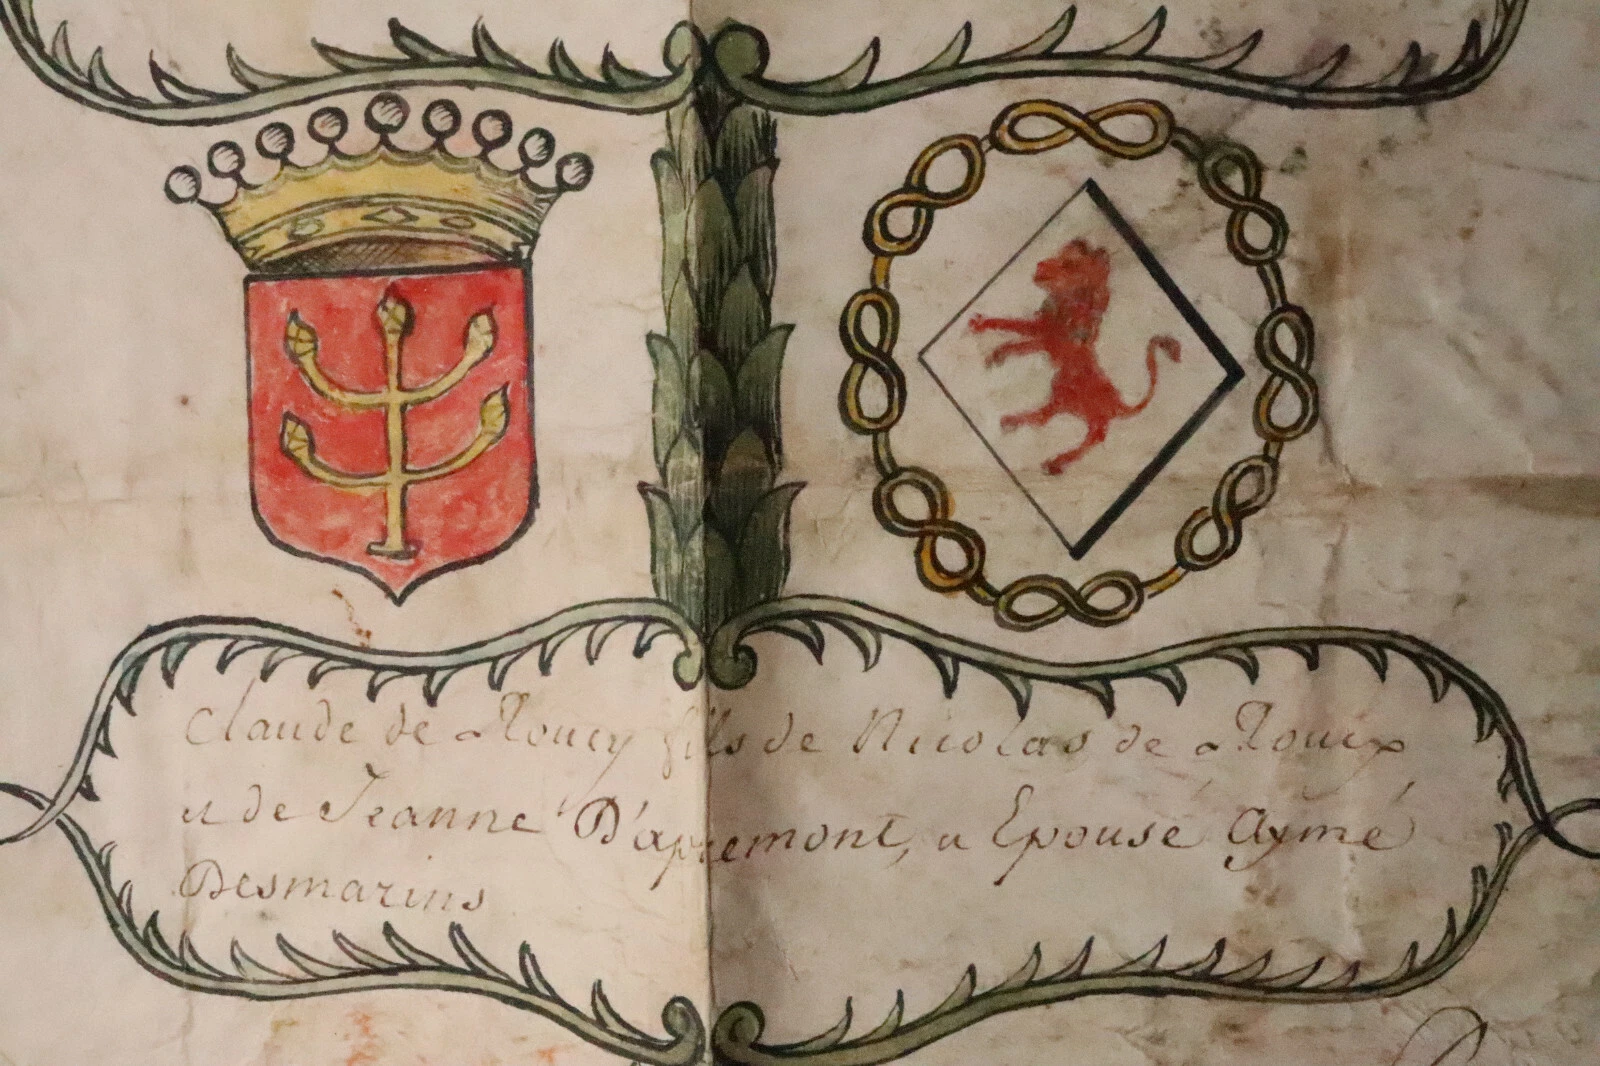 Claude de Roucy fils de Nicolas de Roucy
et de Jeanne D'apremont, a Epousé Aymé
Desmarins